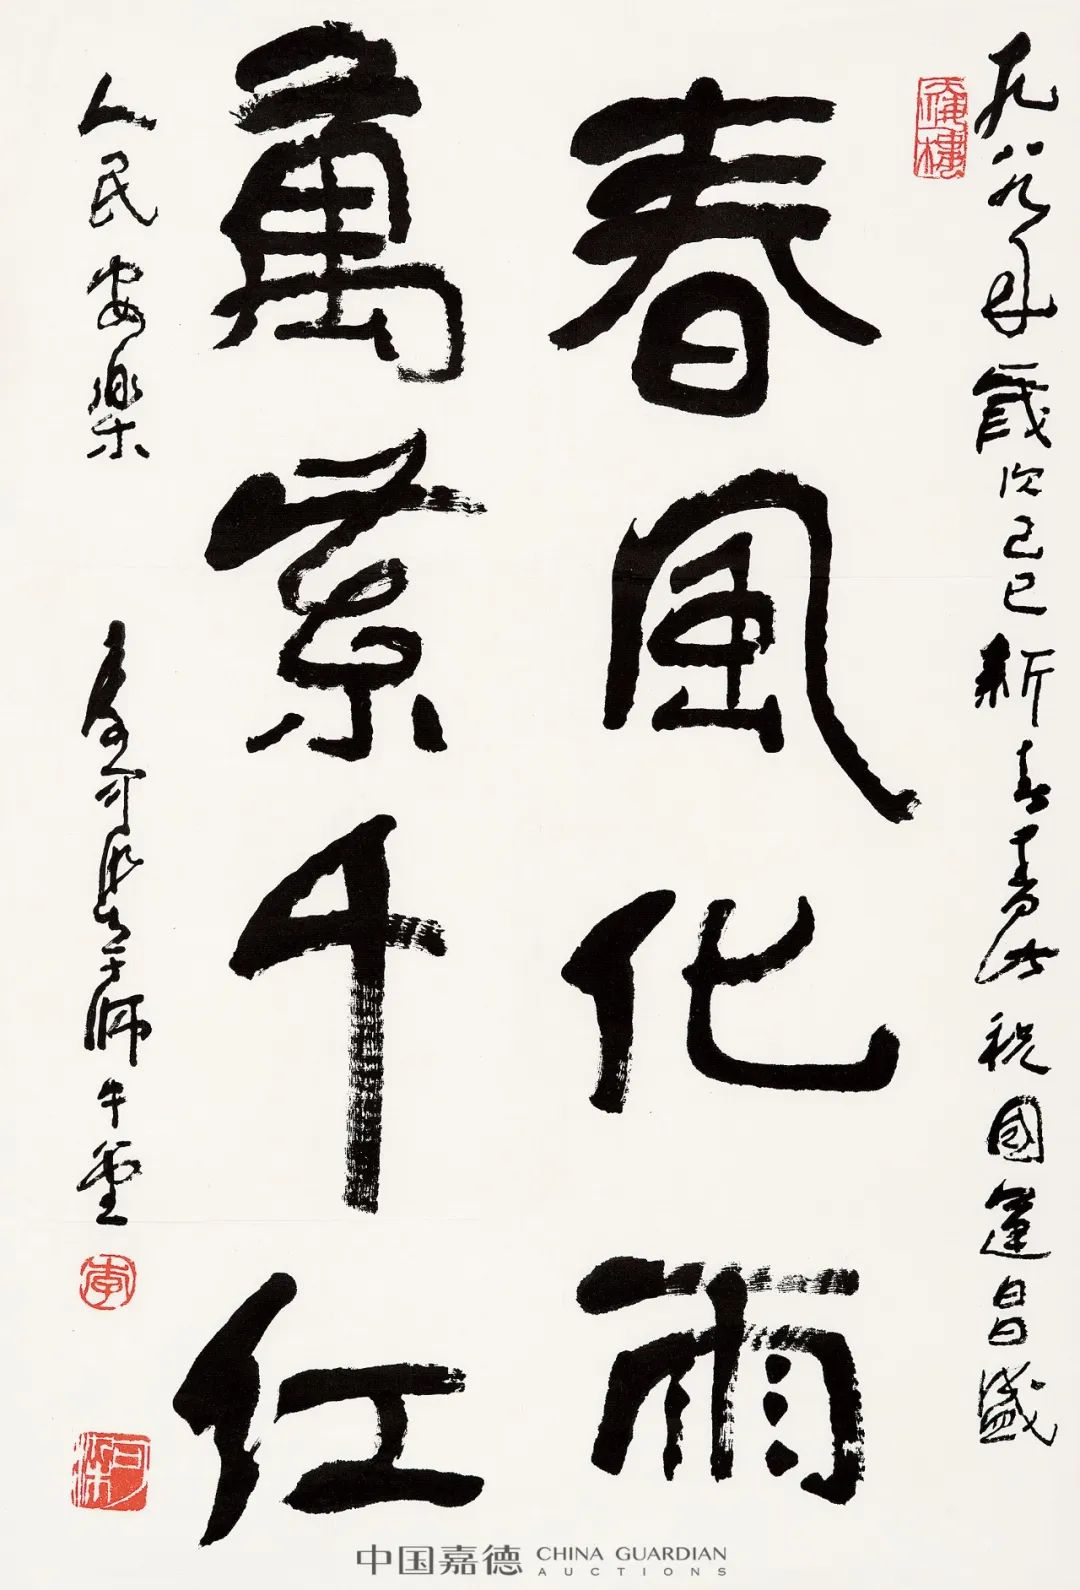 一九八九年歲次己巳新春書此祝國運昌盛
春風化雨
萬紫千紅
人民安樂
李可染于師牛堂
李
可染
中国嘉德 CHINA GUARDIAN
AUCTIONS